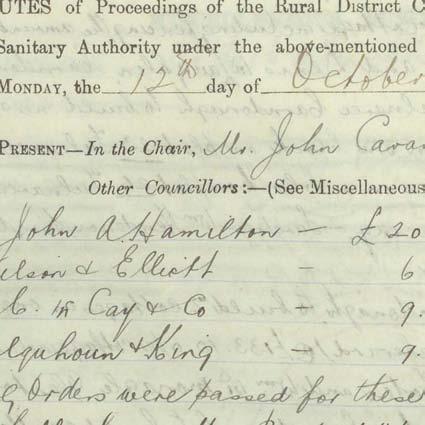 UTES of Proceedings of the Rural District C
Sanitary Authority under the above-mentioned
MONDAY, the 12th day of October
PRESENT—In the Chair, Mr. John Cavan
Other Councillors:—(See Miscellaneous
John A. Hamilton — £20
ilson & Elliott — 6
C. McCay & Co — 9.
lquhoun & King — 9.
g Orders were passed for these